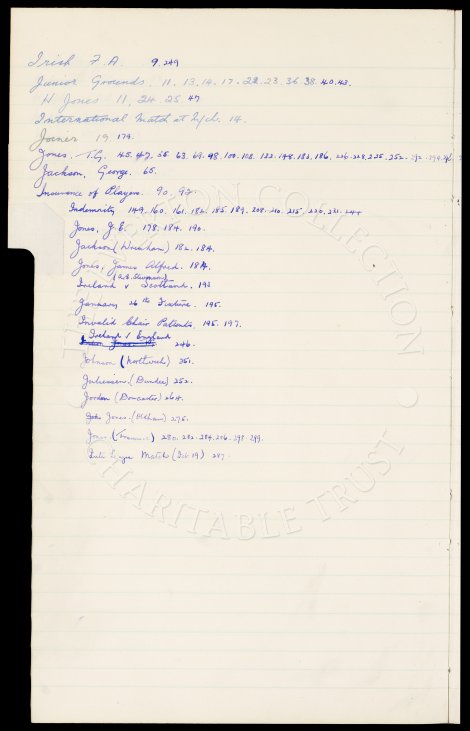 Irish F.A. 9. 249
Junior Grounds. 11. 13. 14. 17. 22. 23. 36. 38. 40. 43.
H. Jones 11. 24. 25 47
International Match at L/ch. 14.
Joiner 19. 174.
Jones, T.G. 45. 47. 55. 63. 69. 98. 100. 108. 122. 148. 182. 186. 226. 228. 235. 252.
Jackson, George. 65.
Insurance of Players. 90, 92.
Indemnity 149. 160. 161. 182. 185. 189. 208. 210. 215.
Jones, J.E. 178. 184. 190.
Jackson (Wrexham) 182. 184.
Jones, James Alfred. 184.
Ireland v Scotland. 193
January 26th Fixture. 195.
Invalid Chair Patients. 195. 197.
Ireland / England
246.
Johnson (Northwich) 251.
Juliussen (Dundee) 252.
Jordan (Doncaster) 264.
Jones (Oldham) 275.
Jones 280. 282. 284. 296. 298. 299.
Inter League Match (Oct 19) 287.
THE EVERTON COLLECTION
CHARITABLE TRUST